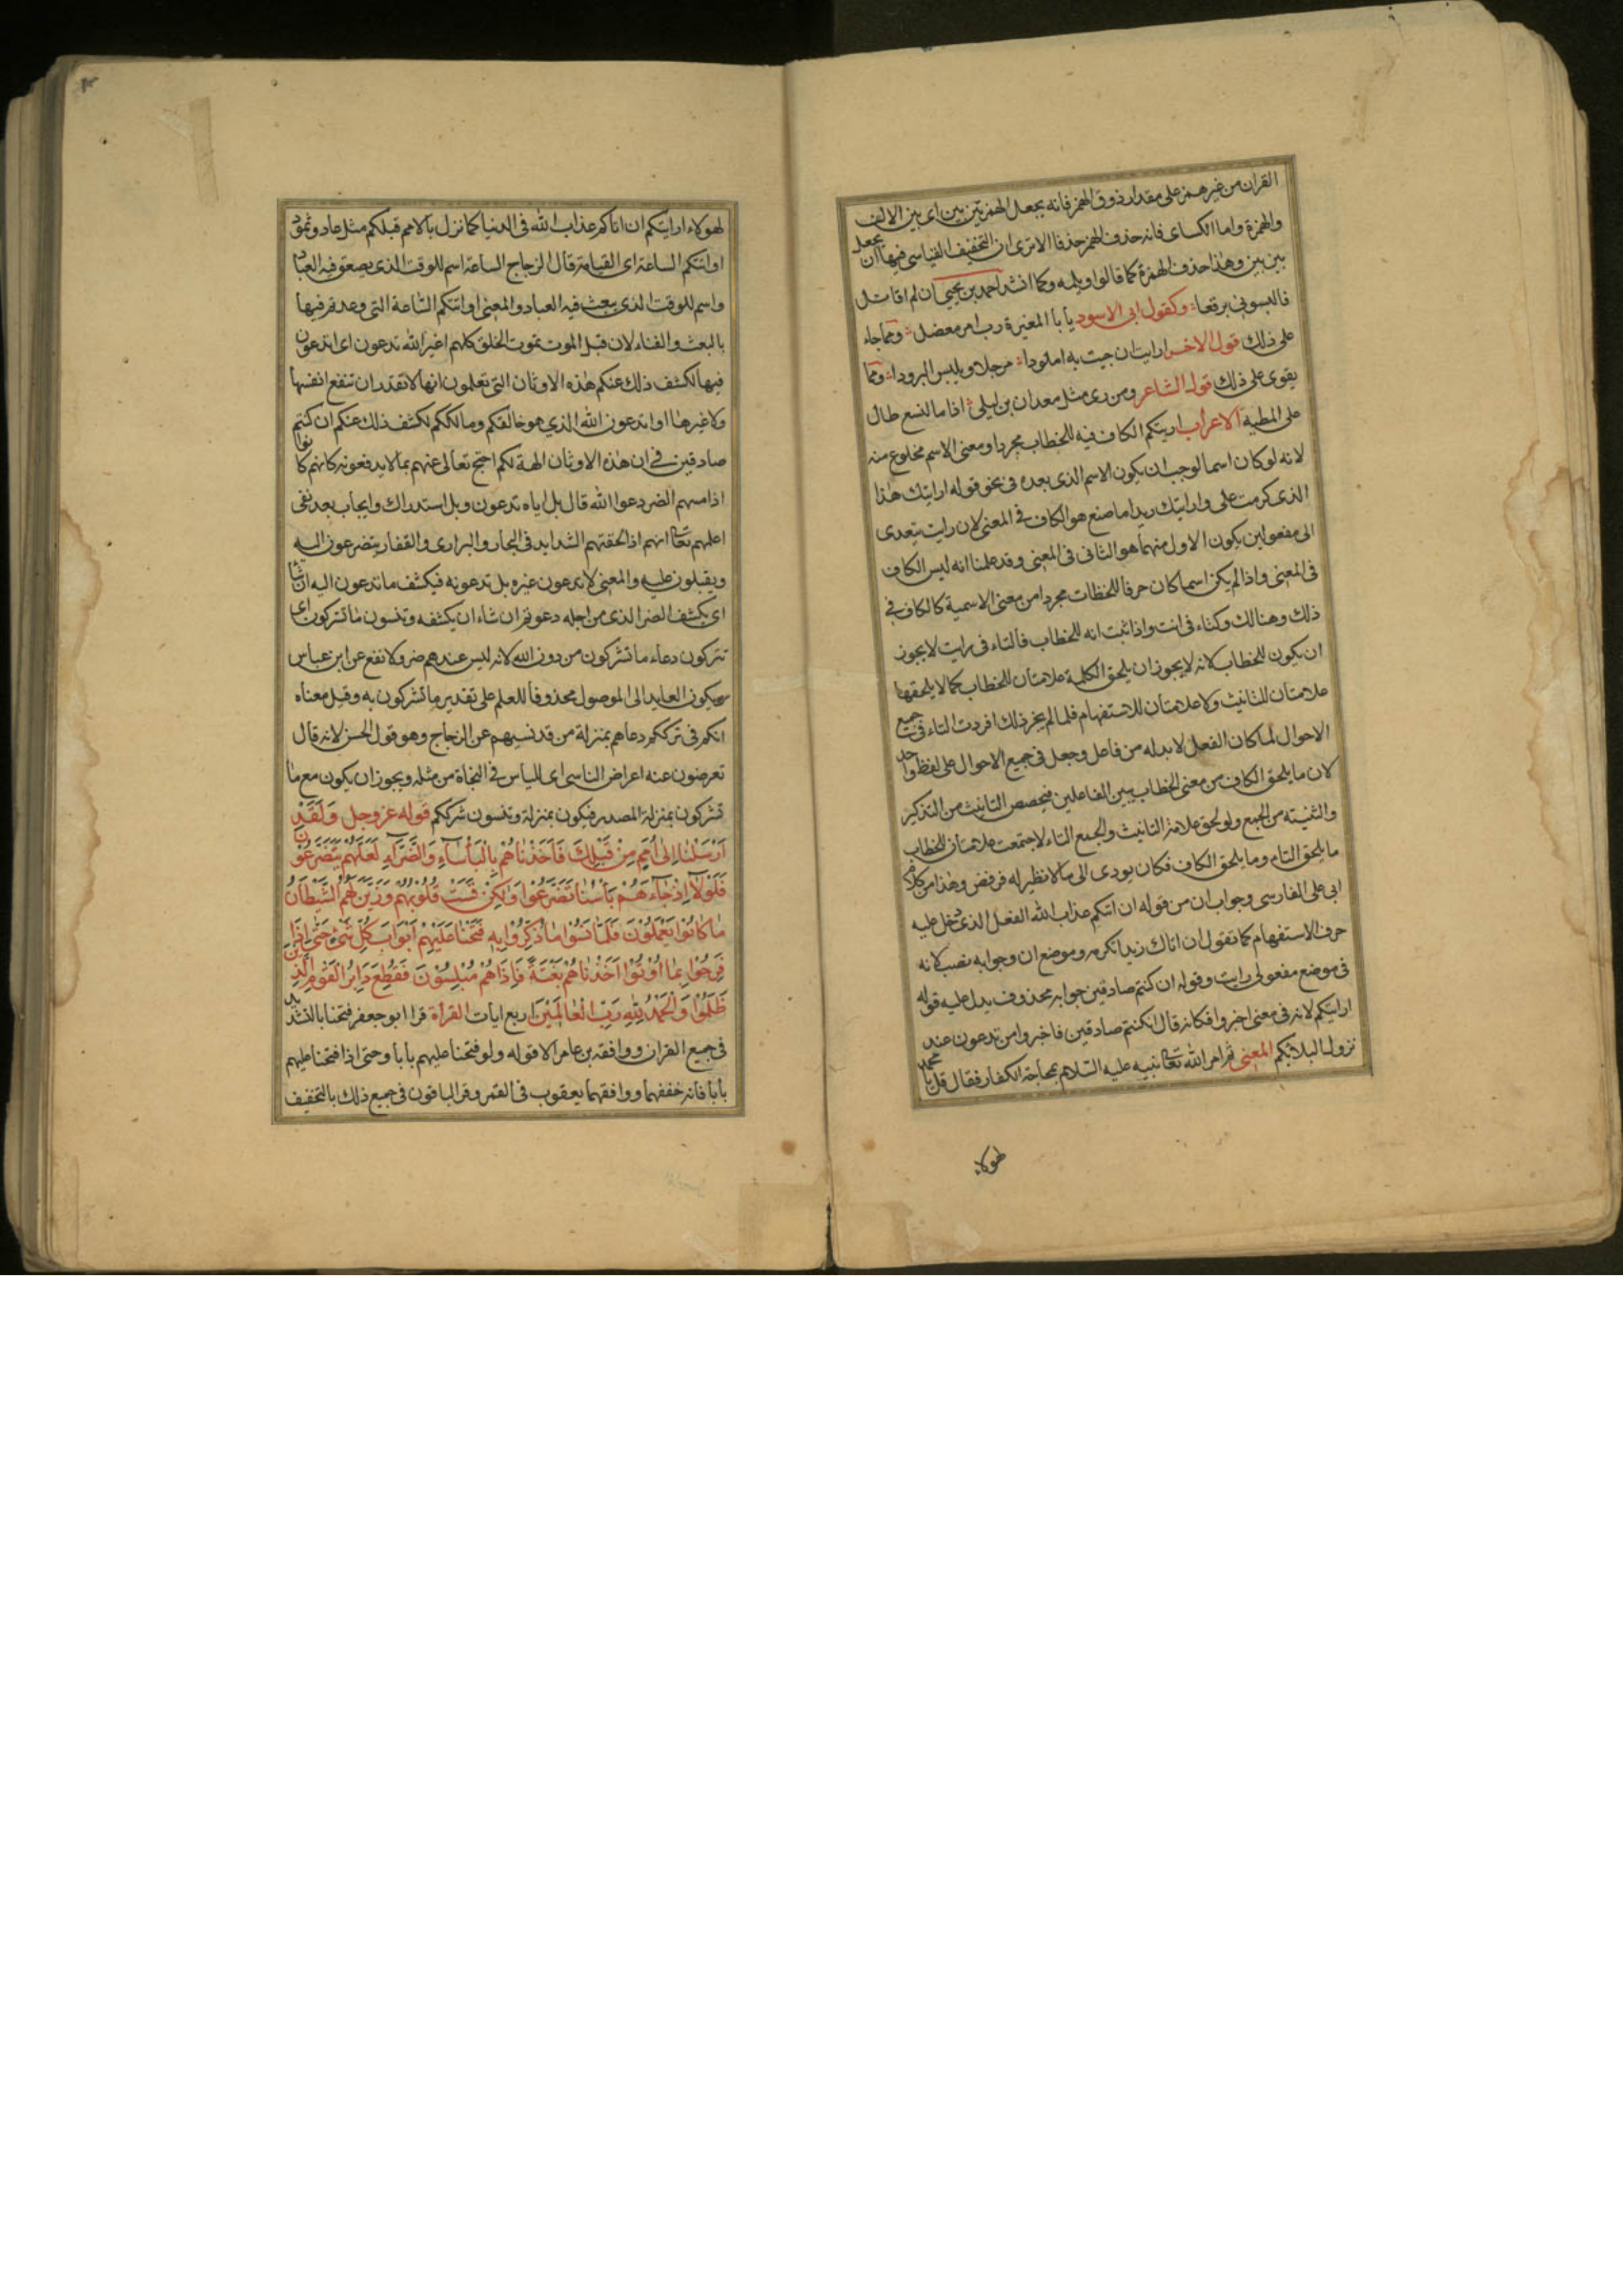 القران من غير همز على مقدار ذوق الهمز فانه يجعل الهمزتين بين بين اى بين الالف
والهمزة واما الكساى فانه حذف الهمز حذفا الا ترى ان التخفيف القياسى فيها ان يجعل
بين بين وهذا حذف الهمزة كما قالوا ويلمه وكما انشد احمد بن يحيى ان لم اقاتل
فالبسونى برقعا وكقول ابى الاسود يا با المغيرة رب امر معضل ومما جاء
على ذلك قول الاخر ارايت ان جيت به املودا مرجلا ويلبس البرودا ومما
يقوى على ذلك قول الشاعر ومن رى مثل معدان بن ليلى اذا ما النسع طال
على المطية الاعراب اريتكم الكاف فيه للخطاب مجردا ومعنى الاسم مخلوع منه
لانه لو كان اسما لوجب ان يكون الاسم الذى بعده فى نحو قوله ارايتك هذا
الذى كرمت على وارايتك زيدا ما صنع هو الكاف فى المعنى لان رايت يتعدى
الى مفعولين يكون الاول منهما هو الثانى فى المعنى وقد علمنا انه ليس الكاف
فى المعنى واذا لم يكن اسما كان حرفا للخطاب مجردا من معنى الاسمية كالكاف فى
ذلك وهنالك وكتاء فى انت واذا ثبت انه للخطاب فالتاء فى رايت لا يجوز
ان يكون للخطاب لانه لا يجوز ان يلحق الكلمة علامتان للخطاب كما لا يلحقها
علامتان للتانيث ولا علامتان للاستفهام فلما لم يجز ذلك افردت التاء فى جميع
الاحوال لما كان الفعل لا بد له من فاعل وجعل فى جميع الاحوال على لفظ واحد
لان ما يلحق الكاف من معنى الخطاب يبين الفاعلين فيخصص التانيث من التذكير
والتثنيته من الجمع ولو لحق علامة التانيث والجمع التاء لاجتمعت علامتان للخطاب
ما يلحق التاء وما يلحق الكاف فكان يودى الى ما لا نظير له فرفض وهذا من كلام
ابى على الفارسى وجواب ان من قوله ان اتيكم عذاب الله الفعل الذى دخل عليه
حرف الاستفهام كما تقول ان اتاك زيد اتكرمه وموضع ان وجوابه نصب لانه
فى موضع مفعولى رايت وقوله ان كنتم صادقين جوابه محذوف يدل عليه قوله
ارايتكم لانه فى معنى اخبروا فكانه قال ان كنتم صادقين فاخبروا من تدعون عند
نزول البلاء بكم المعنى ثم امر الله تعا نبيه عليه السلام بمحاجة الكفار فقال قل يا محمد
لهولاء
لهولاء ارايتكم ان اتاكم عذاب الله فى الدنيا كما نزل بالامم قبلكم مثل عاد وثمود
او اتتكم الساعة اى القيامة قال الزجاج الساعة اسم للوقت الذى يصعق فيه العباد
واسم للوقت الذى يبعث فيه العباد والمعنى او اتتكم الساعة التى وعدتم فيها
بالبعث والفناء لان قبل الموت يموت الخلق كلهم اغير الله تدعون اى اتدعون
فيها لكشف ذلك عنكم هذه الاوثان التى تعلمون انها لا تقدر ان تنفع انفسها
ولا غيرها او تدعون الله الذي هو خالقكم ومالككم لكشف ذلك عنكم ان كنتم
صادقين فى ان هذه الاوثان الهة لكم احتج تعالى عنهم بما لا يدفعونه لانهم كانوا
اذا مسهم الضر دعوا الله قال بل اياه تدعون وبل استدراك وايجاب بعد نفى
اعلمهم تعا انهم اذا لحقتهم الشدايد فى البحار والبرارى والقفار يتضرعون اليه
ويقبلون عليه والمعنى لا تدعون غيره بل تدعونه فيكشف ما تدعون اليه ان شا
اى يكشف الضر الذى من اجله دعوتم ان شاء ان يكشفه وتنسون ما تشركون اى
تتركون دعاء ما تشركون من دون الله لانه ليس عندهم ضر ولا نفع عن ابن عباس
ويكون العايد الى الموصول محذوفا للعلم على تقدير ما تشركون به وقيل معناه
انكم فى ترككم دعاهم بمنزلة من قد نسيهم عن الزجاج وهو قول الحسن لانه قال
تعرضون عنه اعراض الناسى اى للياس فى النجاة من مثله ويجوز ان يكون مع ما
تشركون بمنزلة المصدر فيكون بمنزلة وتنسون شرككم قوله عز وجل وَلَقَدْ
اَرْسَلْنَا اِلٰى اُمَمٍ مِنْ قَبْلِكَ فَاَخَذْنَاهُمْ بِالْبَأْسَآءِ وَالضَّرَّآءِ لَعَلَّهُمْ يَتَضَرَّعُونَ
فَلَوْلَا اِذْ جَاءَهُمْ بَأْسُنَا تَضَرَّعُوا وَلٰكِنْ قَسَتْ قُلُوبُهُمْ وَزَيَّنَ لَهُمُ الشَّيْطَانُ
مَا كَانُوا يَعْمَلُونَ فَلَمَّا نَسُوا مَا ذُكِّرُوا بِهِ فَتَحْنَا عَلَيْهِمْ اَبْوَابَ كُلِّ شَىْءٍ حَتّٰى اِذَا
فَرِحُوا بِمَا اُوتُوا اَخَذْنَاهُمْ بَغْتَةً فَاِذَا هُمْ مُبْلِسُونَ فَقُطِعَ دَابِرُ الْقَوْمِ الَّذِينَ
ظَلَمُوا وَالْحَمْدُ لِلّٰهِ رَبِّ الْعَالَمِينَ اربع ايات القرأة قرا ابو جعفر فتحنا بالتشديد
فى جميع القران ووافقه بن عامر الا قوله ولو فتحنا عليهم بابا وحتى اذا فتحنا عليهم
بابا فانه خففهما ووافقهما يعقوب فى القمر وقرا الباقون فى جميع ذلك بالتخفيف